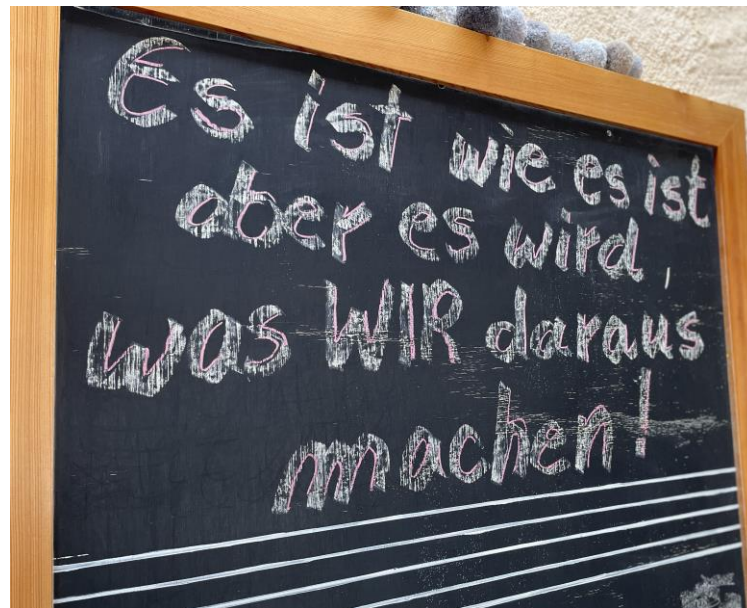 Es ist wie es ist
aber es wird,
was WIR daraus
machen!